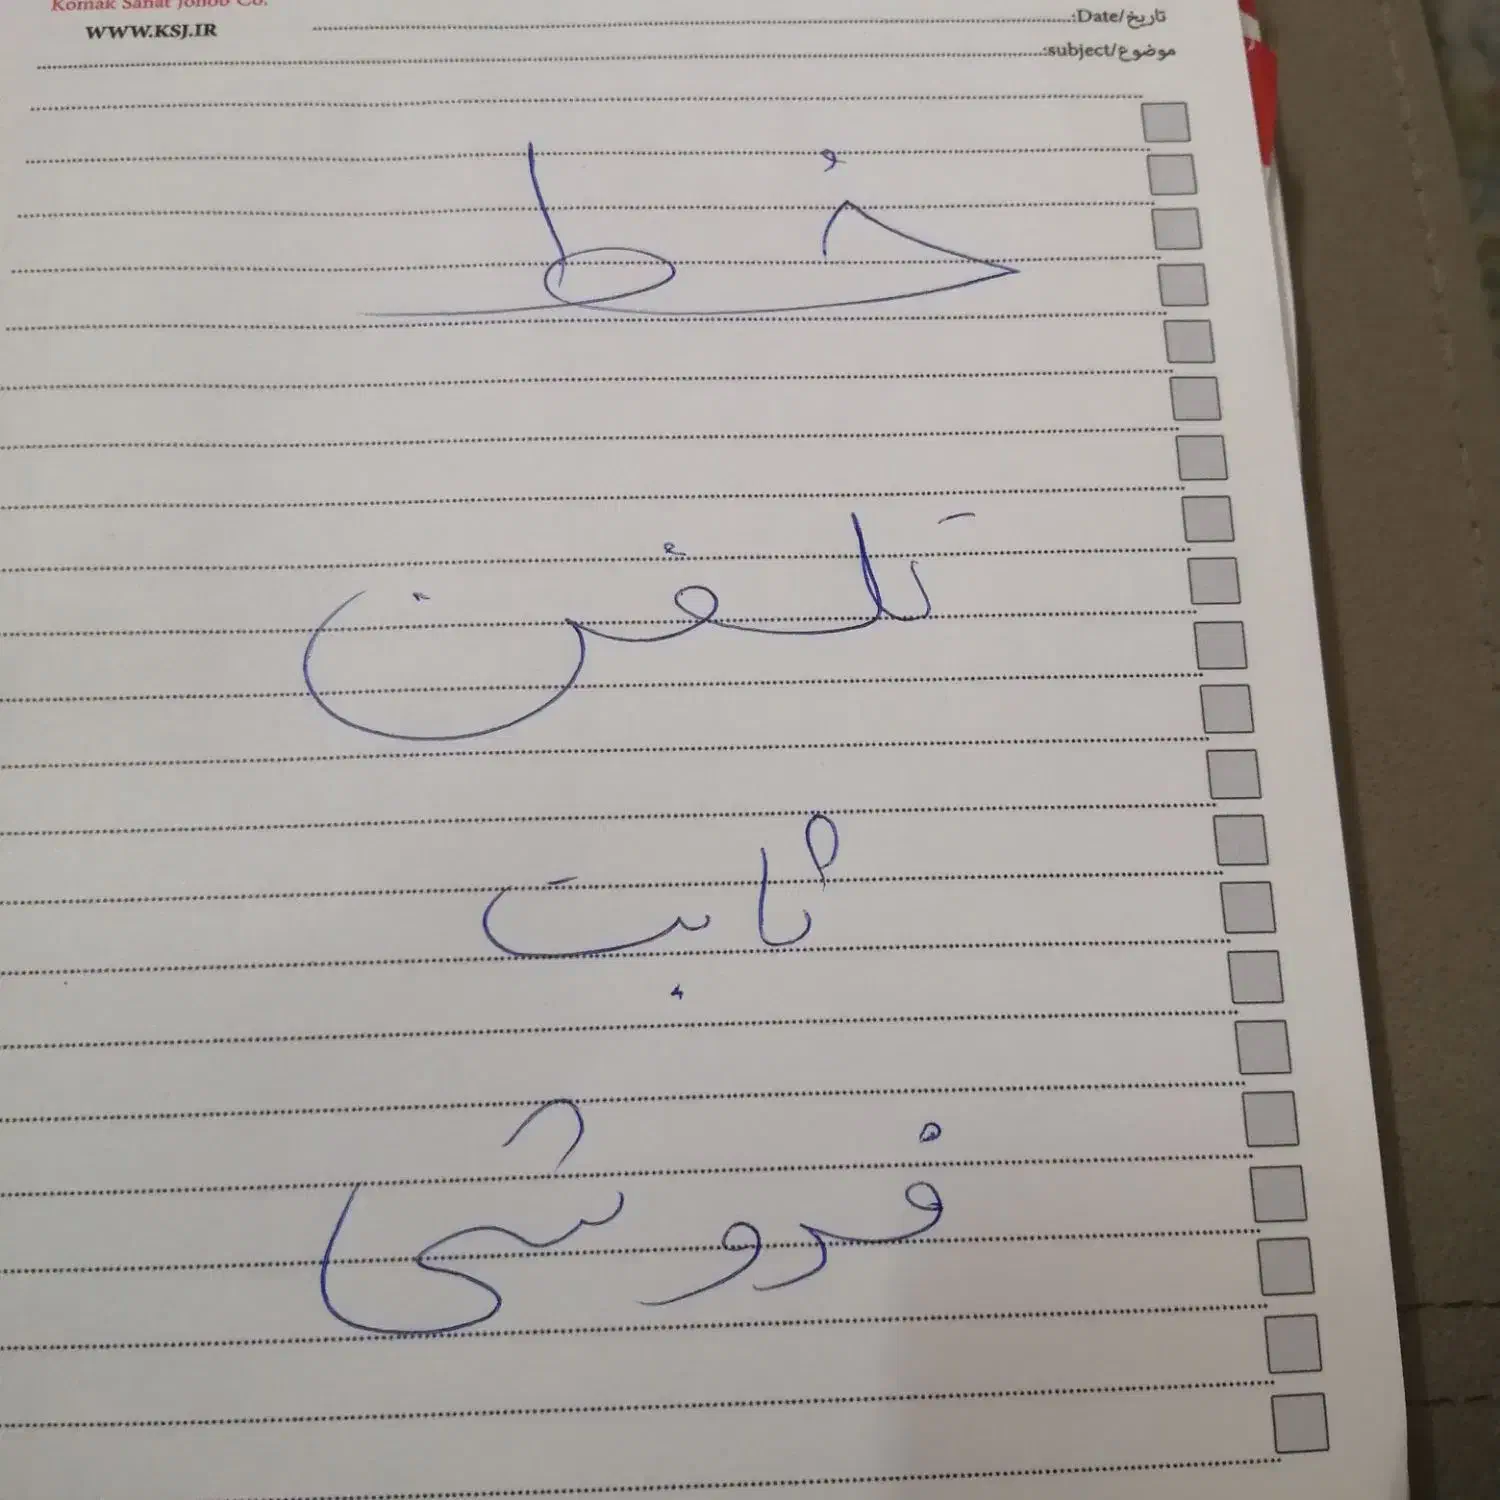 Komak Sanat Jonob Co.
WWW.KSJ.IR
تاریخ/Date:
موضوع/subject:
خط
تلفن
ثابت
فروشی